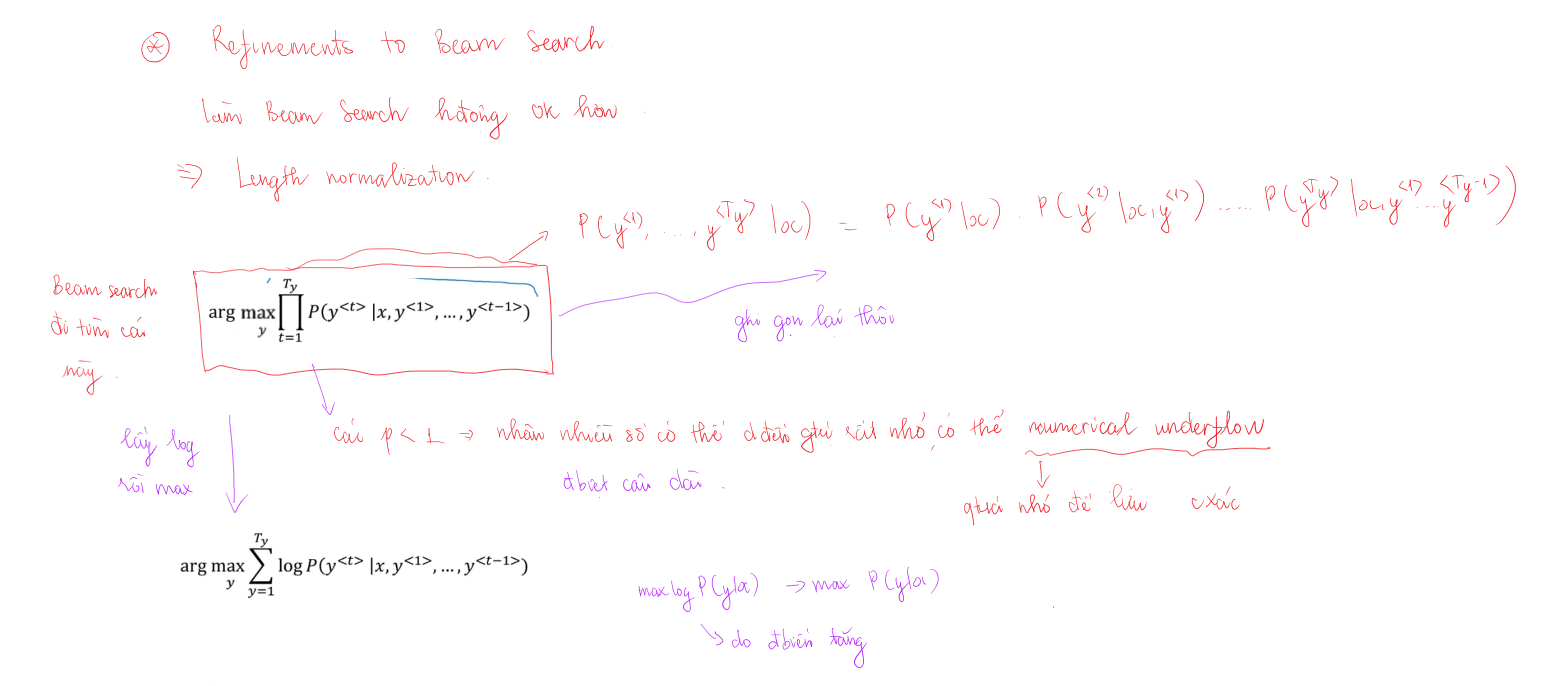 ⊛ Refinements to Beam Search
làm Beam Search hđộng ok hơn.
⇒ Length normalization.
P(y^<1>, ...., y^<Ty> |x) = P(y^<1>|x) . P(y^<2>|x, y^<1>) ..... P(y^<Ty> |x, y^<1> ... y^<Ty-1>)
Beam search
đi tìm cái
này.
arg max_y ∏_{t=1}^{T_y} P(y^{<t>} |x, y^{<1>}, …, y^{<t−1>})
ghi gọn lại thôi
các p < 1 → nhân nhiều số có thể dđến rất nhỏ có thể numerical underflow
đbiệt câu dài.
quá nhỏ để lưu cxác
lấy log
rồi max
arg max_y ∑_{y=1}^{T_y} log P(y^{<t>} |x, y^{<1>}, …, y^{<t−1>})
max log P(y|x) → max P(y|x)
↘ do đbiến tăng